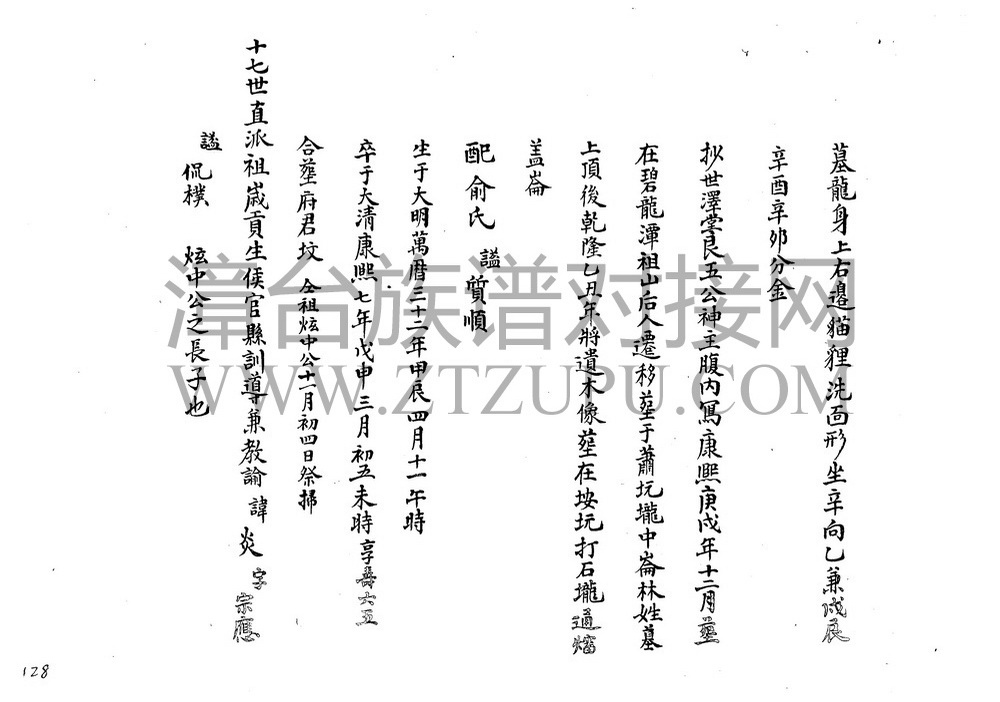 墓龍身上右邉貓狸洗面形坐辛向乙兼戍辰
辛酉辛夘分金
扵世澤堂良五公神主腹内寫康熙庚戍年十二月塟
在碧龍潭祖山后人遷移塟于蕭坑壠中崙林姓墓
上頂後乾隆乙丑年將遺木像塟在垵坑打石壠通
盖崙
配俞氏 謚質順
生于大明萬曆三十二年甲辰四月十一午時
卒于大清康熙七年戊申三月初五未時享壽六五
合塟府君坟 仝祖炫中公十二月初四日祭掃
十七世直派祖嵗貢生侯官縣訓導兼教諭 諱炎 字宗應
謚侃樸 炫中公之長子也
漳台族谱对接网
WWW.ZTZUPU.COM
128